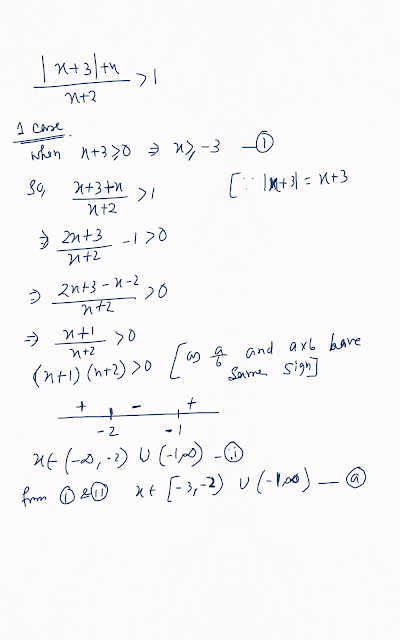 |x+3|+x / x+2 > 1
1 case.
when x+3≥0 ⇒ x≥-3 — ①
So, x+3+x / x+2 > 1 [∵ |x+3| = x+3
⇒ 2x+3 / x+2 - 1 > 0
⇒ 2x+3-x-2 / x+2 > 0
⇒ x+1 / x+2 > 0
(x+1)(x+2) > 0 [as a/b and a×b have same sign]
+ - +
-2 -1
x∈ (-∞, -2) ∪ (-1,∞) — ⓘⓘ
from ① & ⑪ x∈ [-3,-2) ∪ (-1,∞) — ⓐ